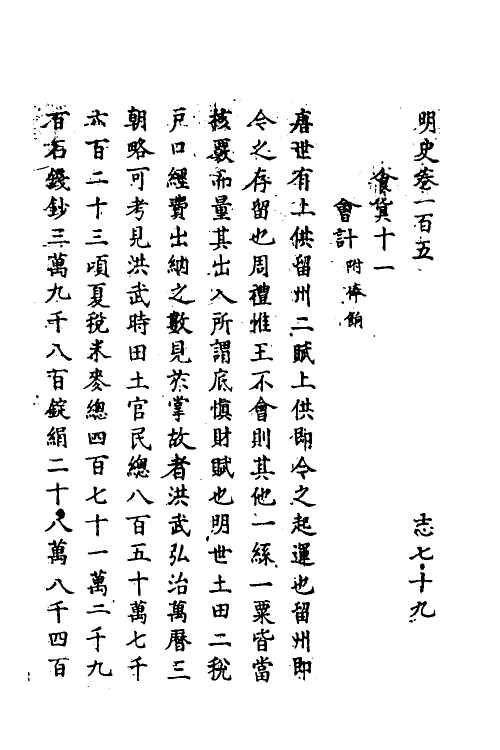 明史卷一百五　志七十九
食貨十一
會計 附俸餉
唐世有上供留州二賦上供即今之起運也留州即
今之存留也周禮惟王不會則其他一絲一粟皆當
核覈而量其出入所謂底慎財賦也明世土田二稅
戸口經費出納之數見於掌故者洪武弘治萬曆三
朝略可考見洪武時田土官民總八百五十萬七千
六百二十三頃夏稅米麥總四百七十一萬二千九
百石錢鈔三萬九千八百錠絹二十八萬八千四百